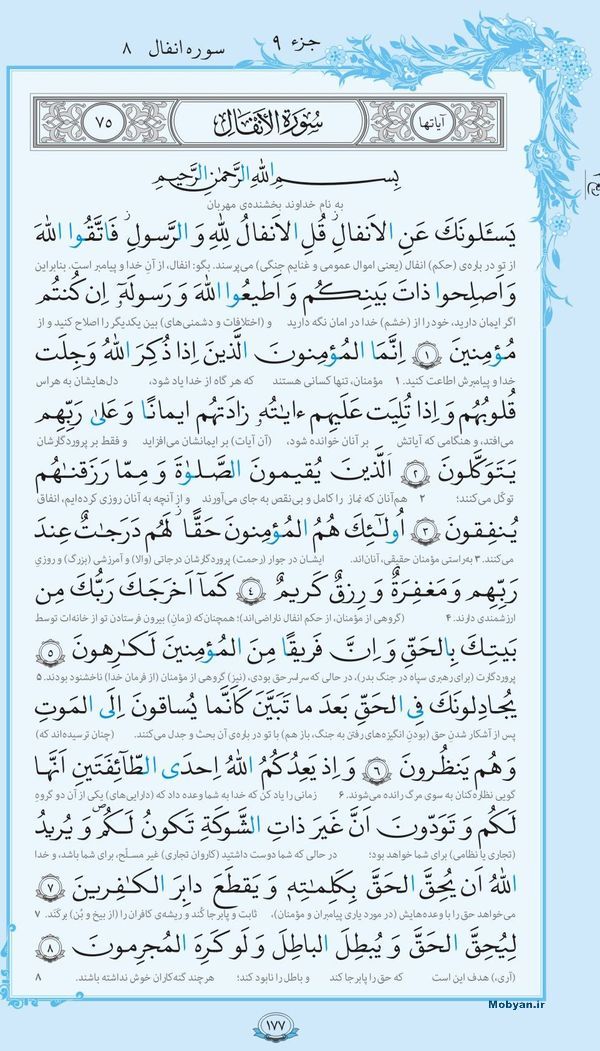 جزء ۹
سوره انفال ۸
آیاتها سُورَةُ الاَنْفَالِ ۷۵
بِسْمِ اللهِ الرَّحْمٰنِ الرَّحیمِ
به نام خداوند بخشنده‌ی مهربان
یَسـَٔلونَكَ عَنِ الاَنفالِ قُلِ الاَنفالُ لِلّٰهِ وَ الرَّسولِ فَاتَّقُوا اللهَ
از تو در باره‌ی (حکم) انفال (یعنی اموال عمومی و غنایم جنگی) می‌پرسند. بگو: انفال، از آنِ خدا و پیامبر است. بنابراین
وَ اَصلِحوا ذاتَ بَینِکُم وَ اَطیعُوا اللهَ وَ رَسولَهٗٓ اِن کُنتُم
اگر ایمان دارید، خود را از (خشم) خدا در امان نگه دارید و (اختلافات و دشمنی‌های) بین یکدیگر را اصلاح کنید و از
مُؤمِنینَ ۱ اِنَّمَا المُؤمِنونَ الَّذینَ اِذا ذُکِرَ اللهُ وَجِلَت
خدا و پیامبرش اطاعت کنید. ۱ مؤمنان، تنها کسانی هستند که هر گاه از خدا یاد شود، دل‌هایشان به هراس
قُلوبُهُم وَ اِذا تُلِیَت عَلَیهِم ءایٰتُهٗ زادَتهُم ایمانًا وَ عَلیٰ رَبِّهِم
می‌افتد، و هنگامی که آیاتش بر آنان خوانده شود، (آن آیات) بر ایمانشان می‌افزاید و فقط بر پروردگارشان
یَتَوَکَّلونَ ۲ اَلَّذینَ یُقیمونَ الصَّلوٰةَ وَ مِمّا رَزَقنٰهُم
توکّل می‌کنند؛ ۲ هم‌آنان که نماز را کامل و بی‌نقص به جای می‌آورند و از آنچه به آنان روزی کرده‌ایم، انفاق
یُنفِقونَ ۳ اُولٰٓئِكَ هُمُ المُؤمِنونَ حَقًّا لَهُم دَرَجٰتٌ عِندَ
می‌کنند. ۳ به‌راستی مؤمنان حقیقی، آنان‌اند. ایشان در جوار (رحمت) پروردگارشان درجاتی (والا) و آمرزشی (بزرگ) و روزیِ
رَبِّهِم وَ مَغفِرَةٌ وَ رِزقٌ کَریمٌ ۴ کَمآ اَخرَجَكَ رَبُّكَ مِن
ارزشمندی دارند. ۴ (گروهی از مؤمنان، از حکم انفال ناراضی‌اند)؛ همچنان‌که (زمانِ) بیرون فرستادن تو از خانه‌ات توسط
بَیتِكَ بِالحَقِّ وَ اِنَّ فَریقًا مِنَ المُؤمِنینَ لَکٰرِهونَ ۵
پروردگارت (برای رهبری سپاه در جنگ بدر)، در حالی که سراسر حق بودی، (نیز) گروهی از مؤمنان (از فرمان خدا) ناخشنود بودند. ۵
یُجادِلونَكَ فِی الحَقِّ بَعدَ ما تَبَیَّنَ کَاَنَّما یُساقونَ اِلَی المَوتِ
پس از آشکار شدن حق (بودنِ انگیزه‌های رفتن به جنگ، باز هم) با تو در باره‌ی آن بحث و جدل می‌کنند. (چنان ترسیده‌اند که)
وَ هُم یَنظُرونَ ۶ وَ اِذ یَعِدُکُمُ اللهُ اِحدَی الطّآئِفَتَینِ اَنَّها
گویی نظاره‌کنان به سوی مرگ رانده می‌شوند. ۶ زمانی را یاد کن که خدا به شما وعده داد که (دارایی‌های) یکی از آن دو گروهِ
لَکُم وَ تَوَدّونَ اَنَّ غَیرَ ذاتِ الشَّوکَةِ تَکونُ لَکُم وَ یُریدُ
(تجاری یا نظامی) برای شما خواهد بود؛ در حالی که شما دوست داشتید (کاروان تجاریِ) غیر مسلّح، برای شما باشد، و خدا
اللهُ اَن یُحِقَّ الحَقَّ بِکَلِمٰتِهٖ وَ یَقطَعَ دابِرَ الکٰفِرینَ ۷
می‌خواهد حق را با وعده‌هایش (در مورد یاری پیامبران و مؤمنان)، ثابت و پابرجا کُند و ریشه‌ی کافران را (از بیخ و بُن) برکَند. ۷
لِیُحِقَّ الحَقَّ وَ یُبطِلَ الباطِلَ وَ لَو کَرِهَ المُجرِمونَ ۸
(آری،) هدف این است که حق را پابرجا کند و باطل را نابود کند؛ هرچند گنه‌کاران خوش نداشته باشند. ۸
۱۷۷
Mobyan.ir